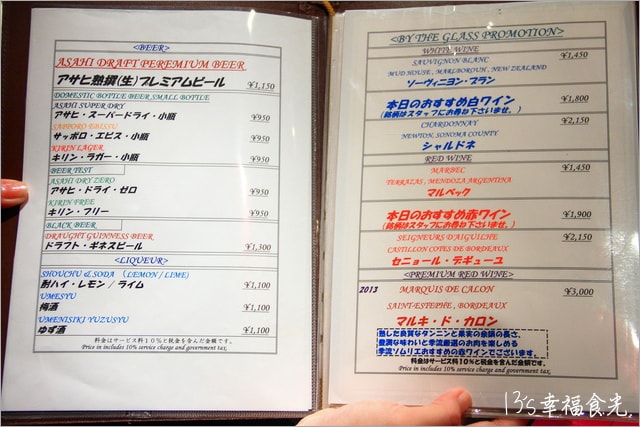 <BEER>
ASAHI DRAFT PEREMIUM BEER
アサヒ熟撰(生)プレミアムビール ¥1,150
DOMESTIC BOTTLE BEER SMALL BOTTLE
ASAHI SUPER DRY
アサヒ・スーパードライ・小瓶 ¥950
SAPPORO EBISSU
サッポロ・エビス・小瓶 ¥950
KIRIN LAGER
キリン・ラガー・小瓶 ¥950
BEER TEST
ASAHI DRY ZERO
アサヒ・ドライ・ゼロ ¥950
KIRIN FREE
キリン・フリー ¥950
BLACK BEER
DRAUGHT GUINNESS BEER
ドラフト・ギネスビール ¥1,300
<LIQUEUR>
SHOUCHU & SODA （LEMON / LIME）
酎ハイ・レモン / ライム ¥1,100
UMESYU
梅酒 ¥1,100
UMENISIKI YUZUSYU
ゆず酒 ¥1,100
料金はサービス料１０％と税金を含んだ金額です。
Price in includes 10% service charge and government tax.
<BY THE GLASS PROMOTION>
WHITE WINE ¥1,450
SAUVIGNON BLANC
MUD HOUSE, MARLBOROUH, NEW ZEALAND
ソーヴィニヨン・ブラン
本日のおすすめ白ワイン ¥1,800
(銘柄はスタッフにお尋ね下さいませ。)
CHARDONNAY ¥2,150
NEWTON, SONOMA COUNTY
シャルドネ
RED WINE
MARBEC ¥1,450
TERRAZAS, MENDOZA ARGENTINA
マルベック
本日のおすすめ赤ワイン ¥1,900
(銘柄はスタッフにお尋ね下さいませ。)
SEIGNEURS D'AIGUILHE ¥2,150
CASTILLON COTES DE BORDEAUX
セニョール・デギューユ
<PREMIUM RED WINE>
2013 MARQUIS DE CALON ¥3,000
SAINT-ESTEPHE, BORDEAUX
マルキ・ド・カロン
熟した良質なタンニンと果実の余韻の長さ、
豊潤な味わいと季流厳選のお肉を楽しめる
季流ソムリエおすすめの赤ワインでございます。
料金はサービス料10％と税金を含んだ金額です。
Price in includes 10% service charge and government tax.
13's幸福食光.